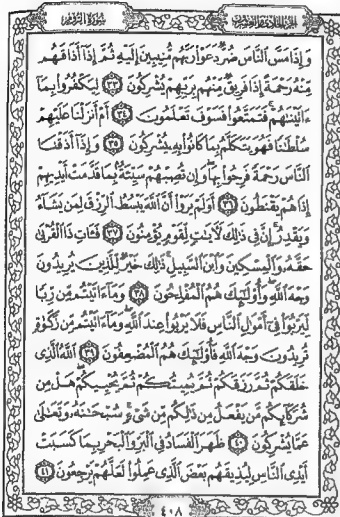 الجزء الحادي والعشرون
سورة الروم
وَإِذَا مَسَّ النَّاسَ ضُرٌّ دَعَوْا رَبَّهُم مُّنِيبِينَ إِلَيْهِ ثُمَّ إِذَا أَذَاقَهُم
مِّنْهُ رَحْمَةً إِذَا فَرِيقٌ مِّنْهُم بِرَبِّهِمْ يُشْرِكُونَ ٣٣ لِيَكْفُرُوا بِمَا
ءَاتَيْنَٰهُمْ فَتَمَتَّعُوا فَسَوْفَ تَعْلَمُونَ ٣٤ أَمْ أَنزَلْنَا عَلَيْهِمْ
سُلْطَٰنًا فَهُوَ يَتَكَلَّمُ بِمَا كَانُوا بِهِ يُشْرِكُونَ ٣٥ وَإِذَا أَذَقْنَا
النَّاسَ رَحْمَةً فَرِحُوا بِهَا وَإِن تُصِبْهُمْ سَيِّئَةٌ بِمَا قَدَّمَتْ أَيْدِيهِمْ
إِذَا هُمْ يَقْنَطُونَ ٣٦ أَوَلَمْ يَرَوْا أَنَّ اللَّهَ يَبْسُطُ الرِّزْقَ لِمَن يَشَاءُ
وَيَقْدِرُ إِنَّ فِي ذَٰلِكَ لَءَايَٰتٍ لِّقَوْمٍ يُؤْمِنُونَ ٣٧ فَـَٔاتِ ذَا الْقُرْبَىٰ
حَقَّهُ وَالْمِسْكِينَ وَابْنَ السَّبِيلِ ذَٰلِكَ خَيْرٌ لِّلَّذِينَ يُرِيدُونَ
وَجْهَ اللَّهِ وَأُولَٰئِكَ هُمُ الْمُفْلِحُونَ ٣٨ وَمَا ءَاتَيْتُم مِّن رِّبًا
لِّيَرْبُوَا فِي أَمْوَٰلِ النَّاسِ فَلَا يَرْبُوا عِندَ اللَّهِ وَمَا ءَاتَيْتُم مِّن زَكَوٰةٍ
تُرِيدُونَ وَجْهَ اللَّهِ فَأُولَٰئِكَ هُمُ الْمُضْعِفُونَ ٣٩ اللَّهُ الَّذِي
خَلَقَكُمْ ثُمَّ رَزَقَكُمْ ثُمَّ يُمِيتُكُمْ ثُمَّ يُحْيِيكُمْ هَلْ مِن
شُرَكَائِكُم مَّن يَفْعَلُ مِن ذَٰلِكُم مِّن شَيْءٍ سُبْحَٰنَهُ وَتَعَٰلَىٰ
عَمَّا يُشْرِكُونَ ٤٠ ظَهَرَ الْفَسَادُ فِي الْبَرِّ وَالْبَحْرِ بِمَا كَسَبَتْ
أَيْدِي النَّاسِ لِيُذِيقَهُم بَعْضَ الَّذِي عَمِلُوا لَعَلَّهُمْ يَرْجِعُونَ ٤١
٤٠٨